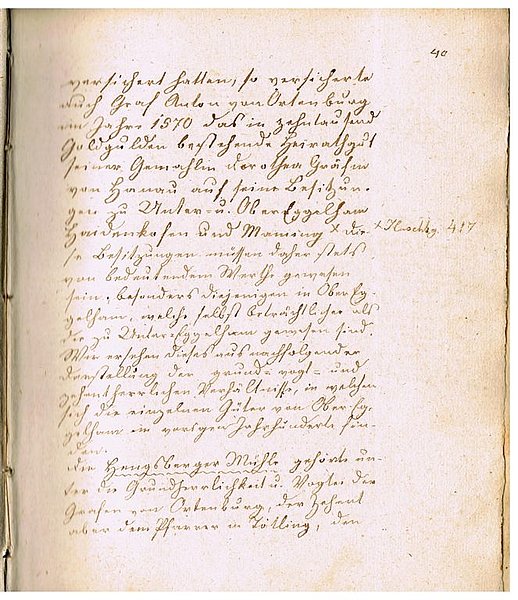 40
versichert hatten, so versicherte
auch Graf Anton von Ortenburg
im Jahre 1570 das in zehntausend
Goldgulden bestehende Heirathgut
seiner Gemahlin Dorothea Gräfin
von Hanau auf seine Besitzun-
gen zu Unter- u. OberEggelham
Haidenkofen und Maming × die-
× Huschbg. 417
se Besitzungen müssen daher stets
von bedeutendem Werthe gewesen
sein, besonders diejenigen in OberEg-
gelham, welche selbst beträchtlicher als
die zu UnterEggelham gewesen sind.
Wir ersehen dieses aus nachfolgender
Darstellung der grund- vogt- und
zehentherrlichen Verhältnisse, in welchen
sich die einzelnen Güter von OberEg-
gelham im vorigen Jahrhunderte fin-
den.
Die Hengsberger Mühle gehörte un-
ter die Grundherrlichkeit u. Vogtei der
Grafen von Ortenburg, der Zehent
aber dem Pfarrer in Tötling, den